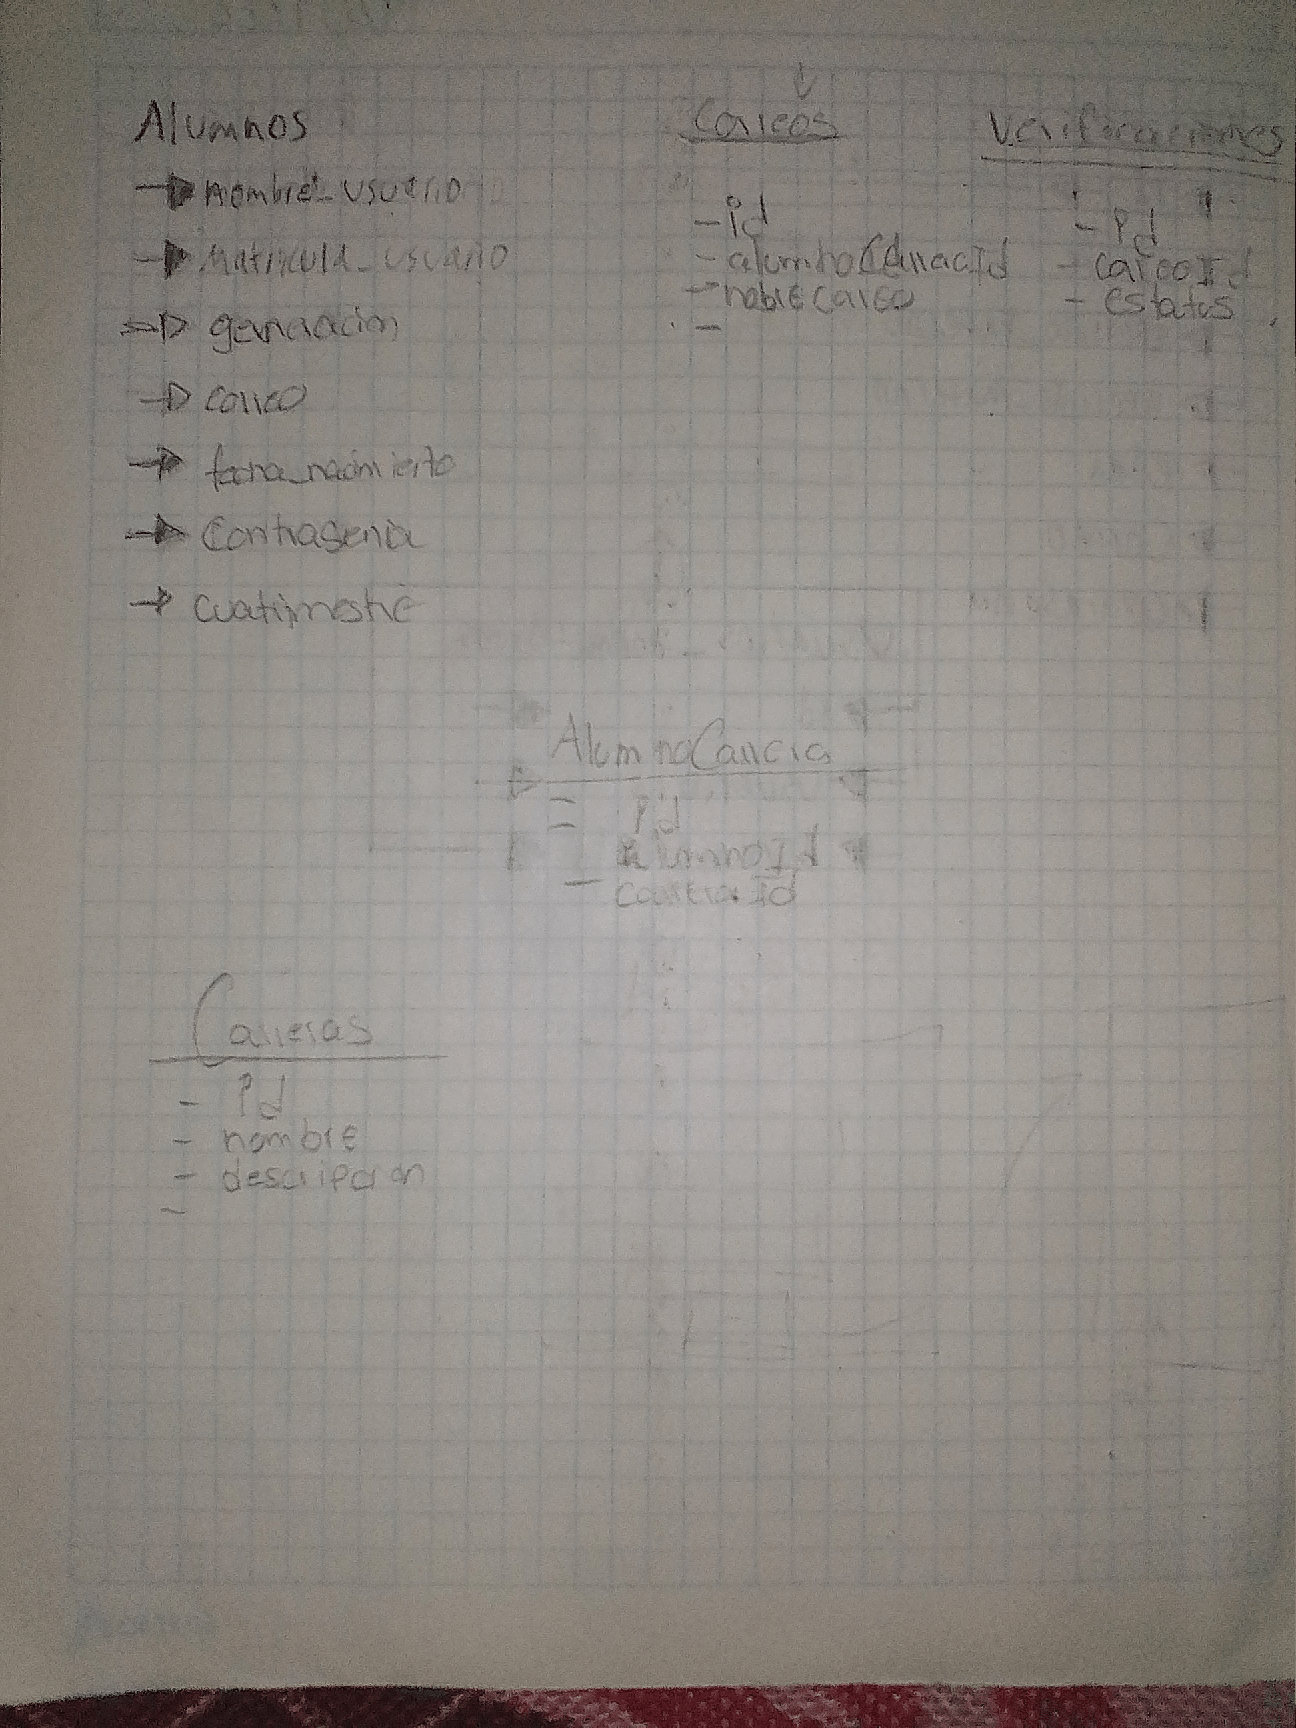 Alumnos
nombre_usuario
Matricula_usuario
generacion
correo
fecha_nacimiento
Contrasenia
Cuatrimestre
Correos
- id
- alumnoCarreraId
- nobre correo
-
Verificaciones
- id
- correoId
- estatus
AlumnoCarrera
- id
alumnoId
- carreraId
Carreras
- id
- nombre
- descripcion
-